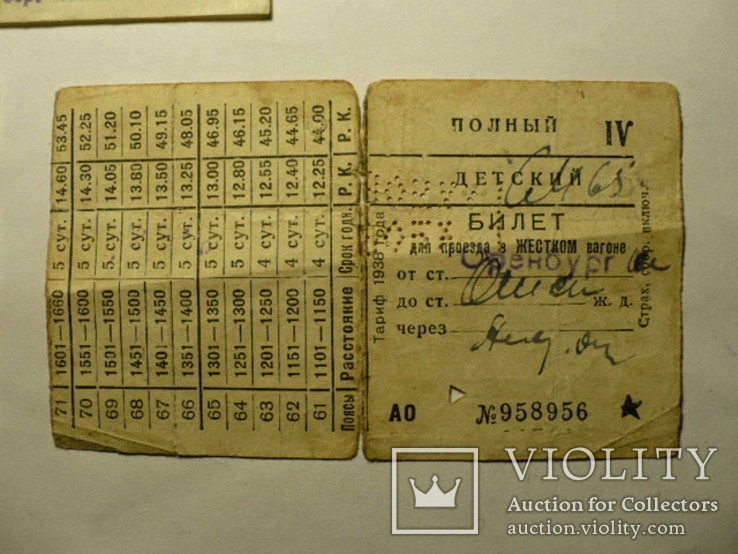 71 1601—1660 5 сут. 14.60 53.45
70 1551—1600 5 сут. 14.30 52.25
69 1501—1550 5 сут. 14.05 51.20
68 1451—1500 5 сут. 13.80 50.10
67 1401—1450 5 сут. 13.50 49.15
66 1351—1400 5 сут. 13.25 48.05
65 1301—1350 5 сут. 13.00 46.95
64 1251—1300 5 сут. 12.80 46.15
63 1201—1250 4 сут. 12.55 45.20
62 1151—1200 4 сут. 12.40 44.65
61 1101—1150 4 сут. 12.25 44.00
Поясы Расстояние Срок годн. Р. К. Р. К.
Тариф 1938 года
ПОЛНЫЙ IV
ДЕТСКИЙ 65
БИЛЕТ
для проезда в ЖЕСТКОМ вагоне
от ст. Оренбург
до ст. ж. д.
через
АО №958956
Страх, сбор. включ.
VIOLITY
Auction for Collectors
auction.violity.com